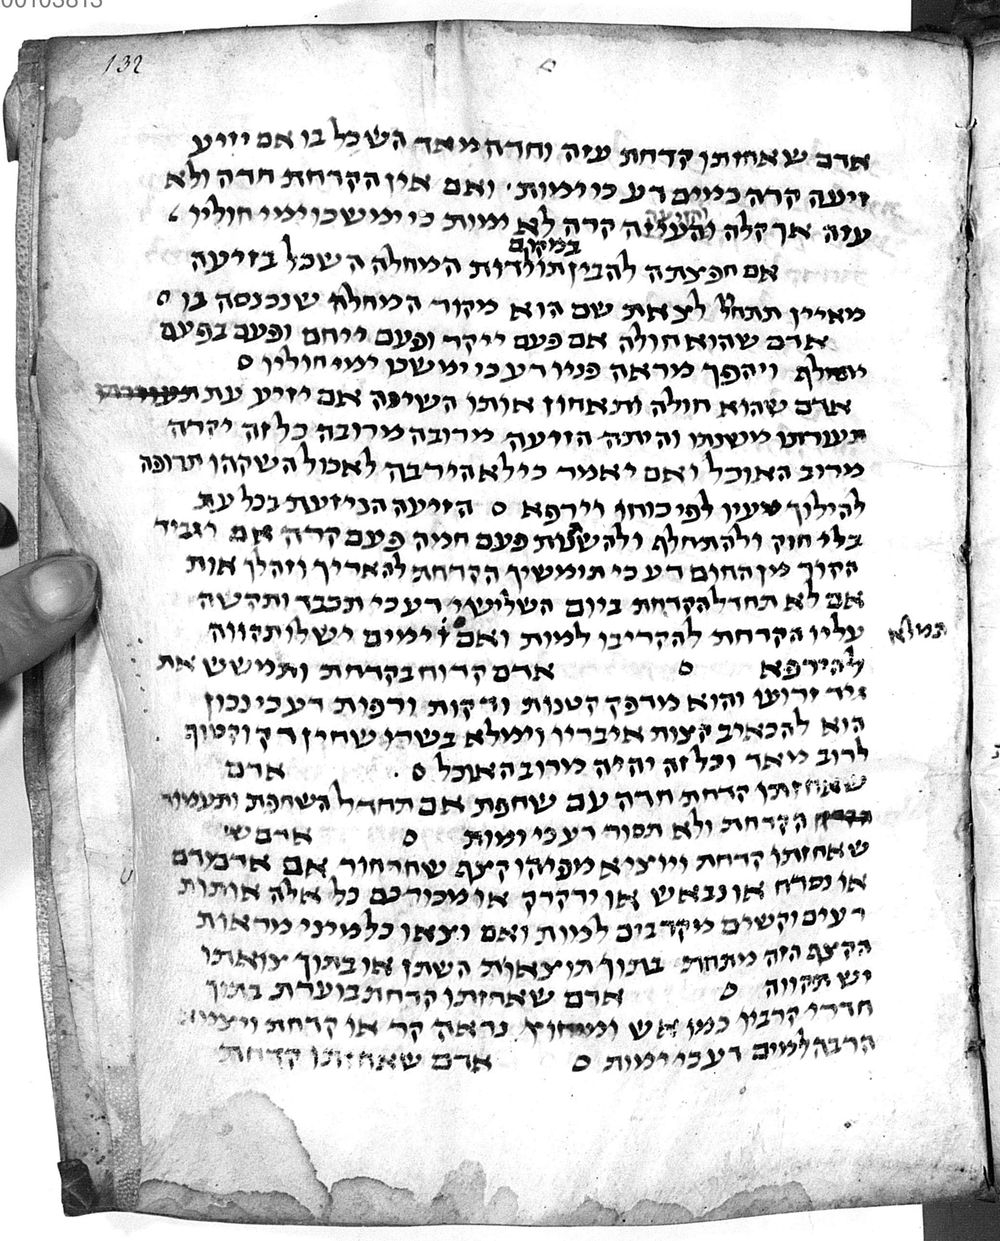 00103813
132
אדם שאחזתו קדחת עזה וחדה מאד השכל בו אם יזיע
זיעה קרה כמים דע כי ימות׳ ואם אין הקדחת חדה ולא
עזה אך קלה והזיעה קרה לא ימות כי ימשכו ימי חוליו
במקום
אם חפצתה להבין תולדות המחלה השכל בזיעה
מאיין תתחל לצאת שם הוא מקור המחלה שנכנסה בו ס
אדם שהוא חולה אם פעם ייקר ופעם ייחם ופעם בפעם
יחלף ויהפך מראה פניו דע כי ימשכו ימי חוליו ס
אדם שהוא חולה ותאחוז אותו השינה אם יזיע עת
תעורתו משנתו והיתה הזיעה מרובה מרובה כל זה יקרה
מרוב האוכל ואם יאמר כי לא הירבה לאכול השקהו תרופה
להילוך מעיו לפי כוחו וירפא ס הזיעה הניזעת בכל עת
בלי חוק ולהתחלף ולהשנות פעם חמה פעם קרה אם יגביר
הקור מן החום דע כי תומשיך הקדחת להאריך וזה לך אות
אם לא תחדל הקדחת ביום השלישי דע כי תכבד ותקשה
עליו הקדחת להקריבו למות ואם ז׳ ימים יש לו תקווה
תמולא
להירפא ס אדם קדוח בקדחת ותמשש את
גיד זרועו והוא מרפק קטנות ודקות ורפות דע כי נכון
הוא להכאיב קצות איבריו וימלא בשרו שחין רק וקטוף
לרוב מאד וכל זה יהיה מרוב האוכל ס אדם
שאחזתו קדחת חדה עם שחפת אם תחדל השחפת ותעמוד
הקדחת ולא תסור דע כי ימות ס אדם ש
שאחזתו קדחת ויוציא מפיהו קצף שחרחור אם אדמדם
או נסרח או נבאש או ירקרק או מכורכם כל אלה אותות
רעים וקשים מקרבים למות ואם יצאו כל מיני מראות
הקצף הזה מתחת בתוך תוצאות השתן או בתוך צואתו
יש תקווה ס אדם שאחזתו קדחת בוערת בתוך
חדרי קרביו כמו אש ומחוץ נראה קר או קדחת ויצמא
הרבה למים דע כי ימות ס אדם שאחזתו קדחת